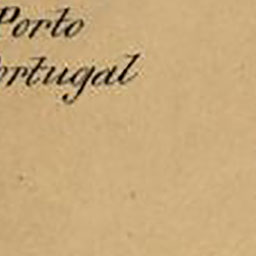 Porto
ortugal